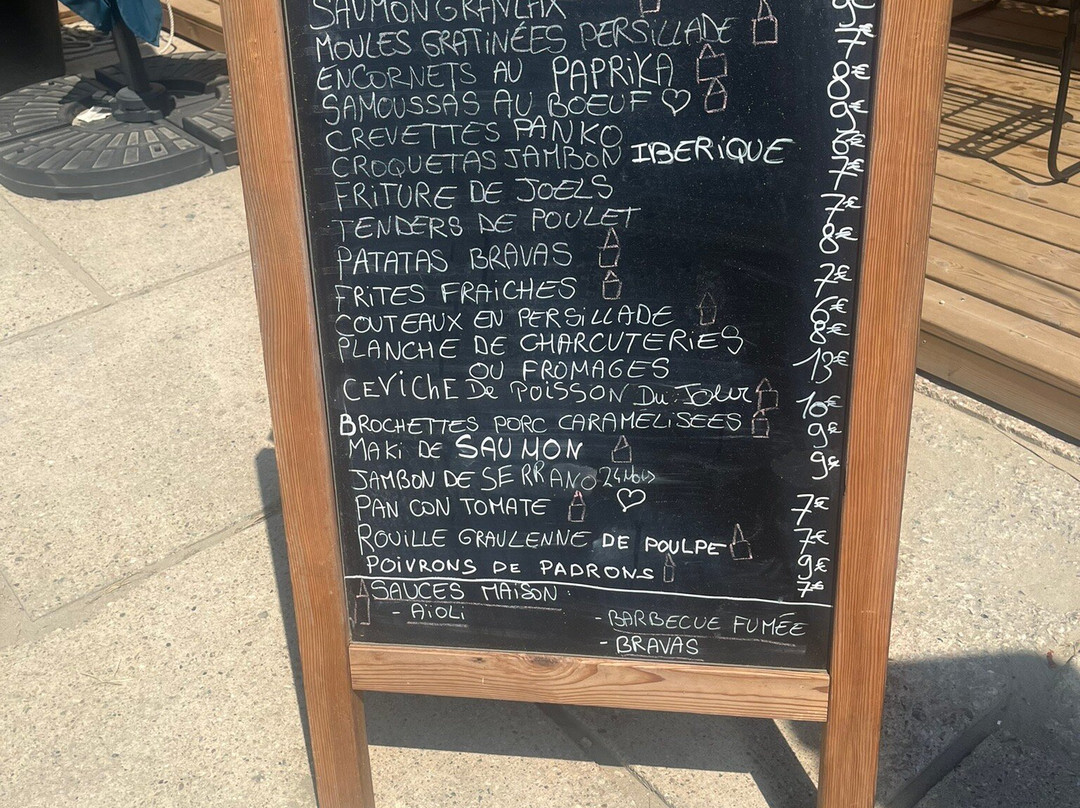 SAUMON GRAVLAX
MOULES GRATINÉES PERSILLADE 7€
ENCORNETS AU PAPRIKA 8€
SAMOUSSAS AU BOEUF ♡
CREVETTES PANKO
CROQUETAS JAMBON IBERIQUE 7€
FRITURE DE JOELS 7€
TENDERS DE POULET 8€
PATATAS BRAVAS 7€
FRITES FRAICHES 6€
COUTEAUX EN PERSILLADE 8€
PLANCHE DE CHARCUTERIES 13€
OU FROMAGES
CEVICHE De POISSON Du Jour 10€
BROCHETTES PORC CARAMELISEES 9€
MAKI DE SAUMON 9€
JAMBON DE SERRANO 24 MOIS
PAN CON TOMATE ♡ 7€
ROUILLE GRAULENNE DE POULPE 9€
POIVRONS DE PADRONS 7€
SAUCES MAISON :
- AÏOLI
- BARBECUE FUMÉE
- BRAVAS